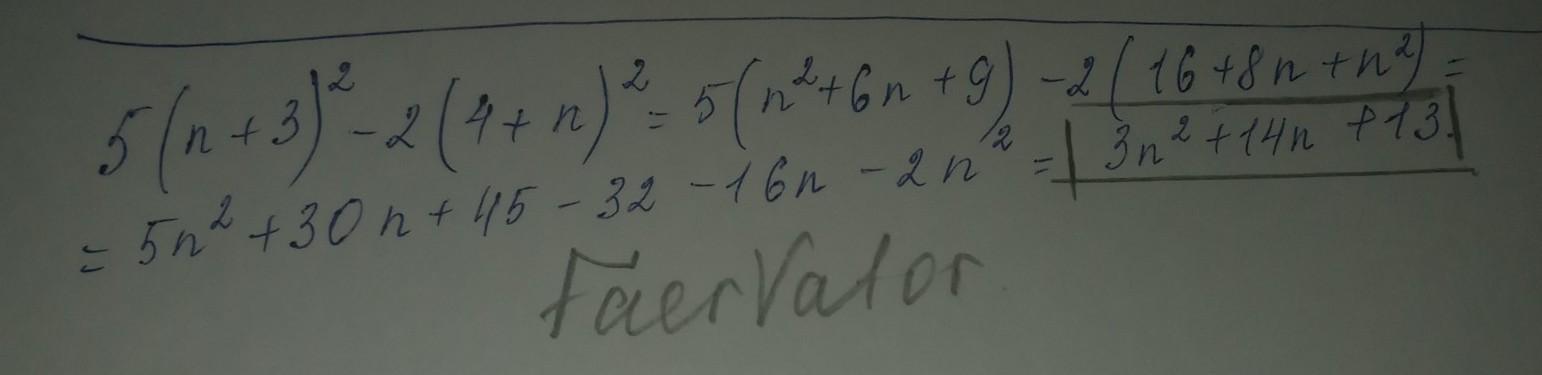 5(n+3)²-2(4+n)²=5(n²+6n+9)-2(16+8n+n²)=
=5n²+30n+45-32-16n-2n²=3n²+14n+13.
FaerVator